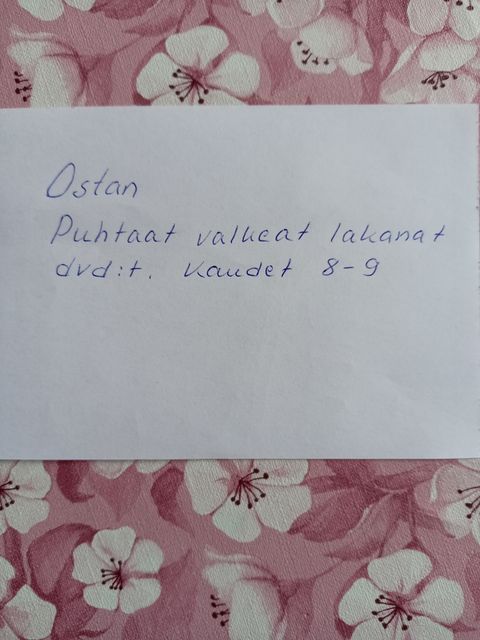 Ostan
Puhtaat valkeat lakanat
dvd:t. Kaudet 8-9